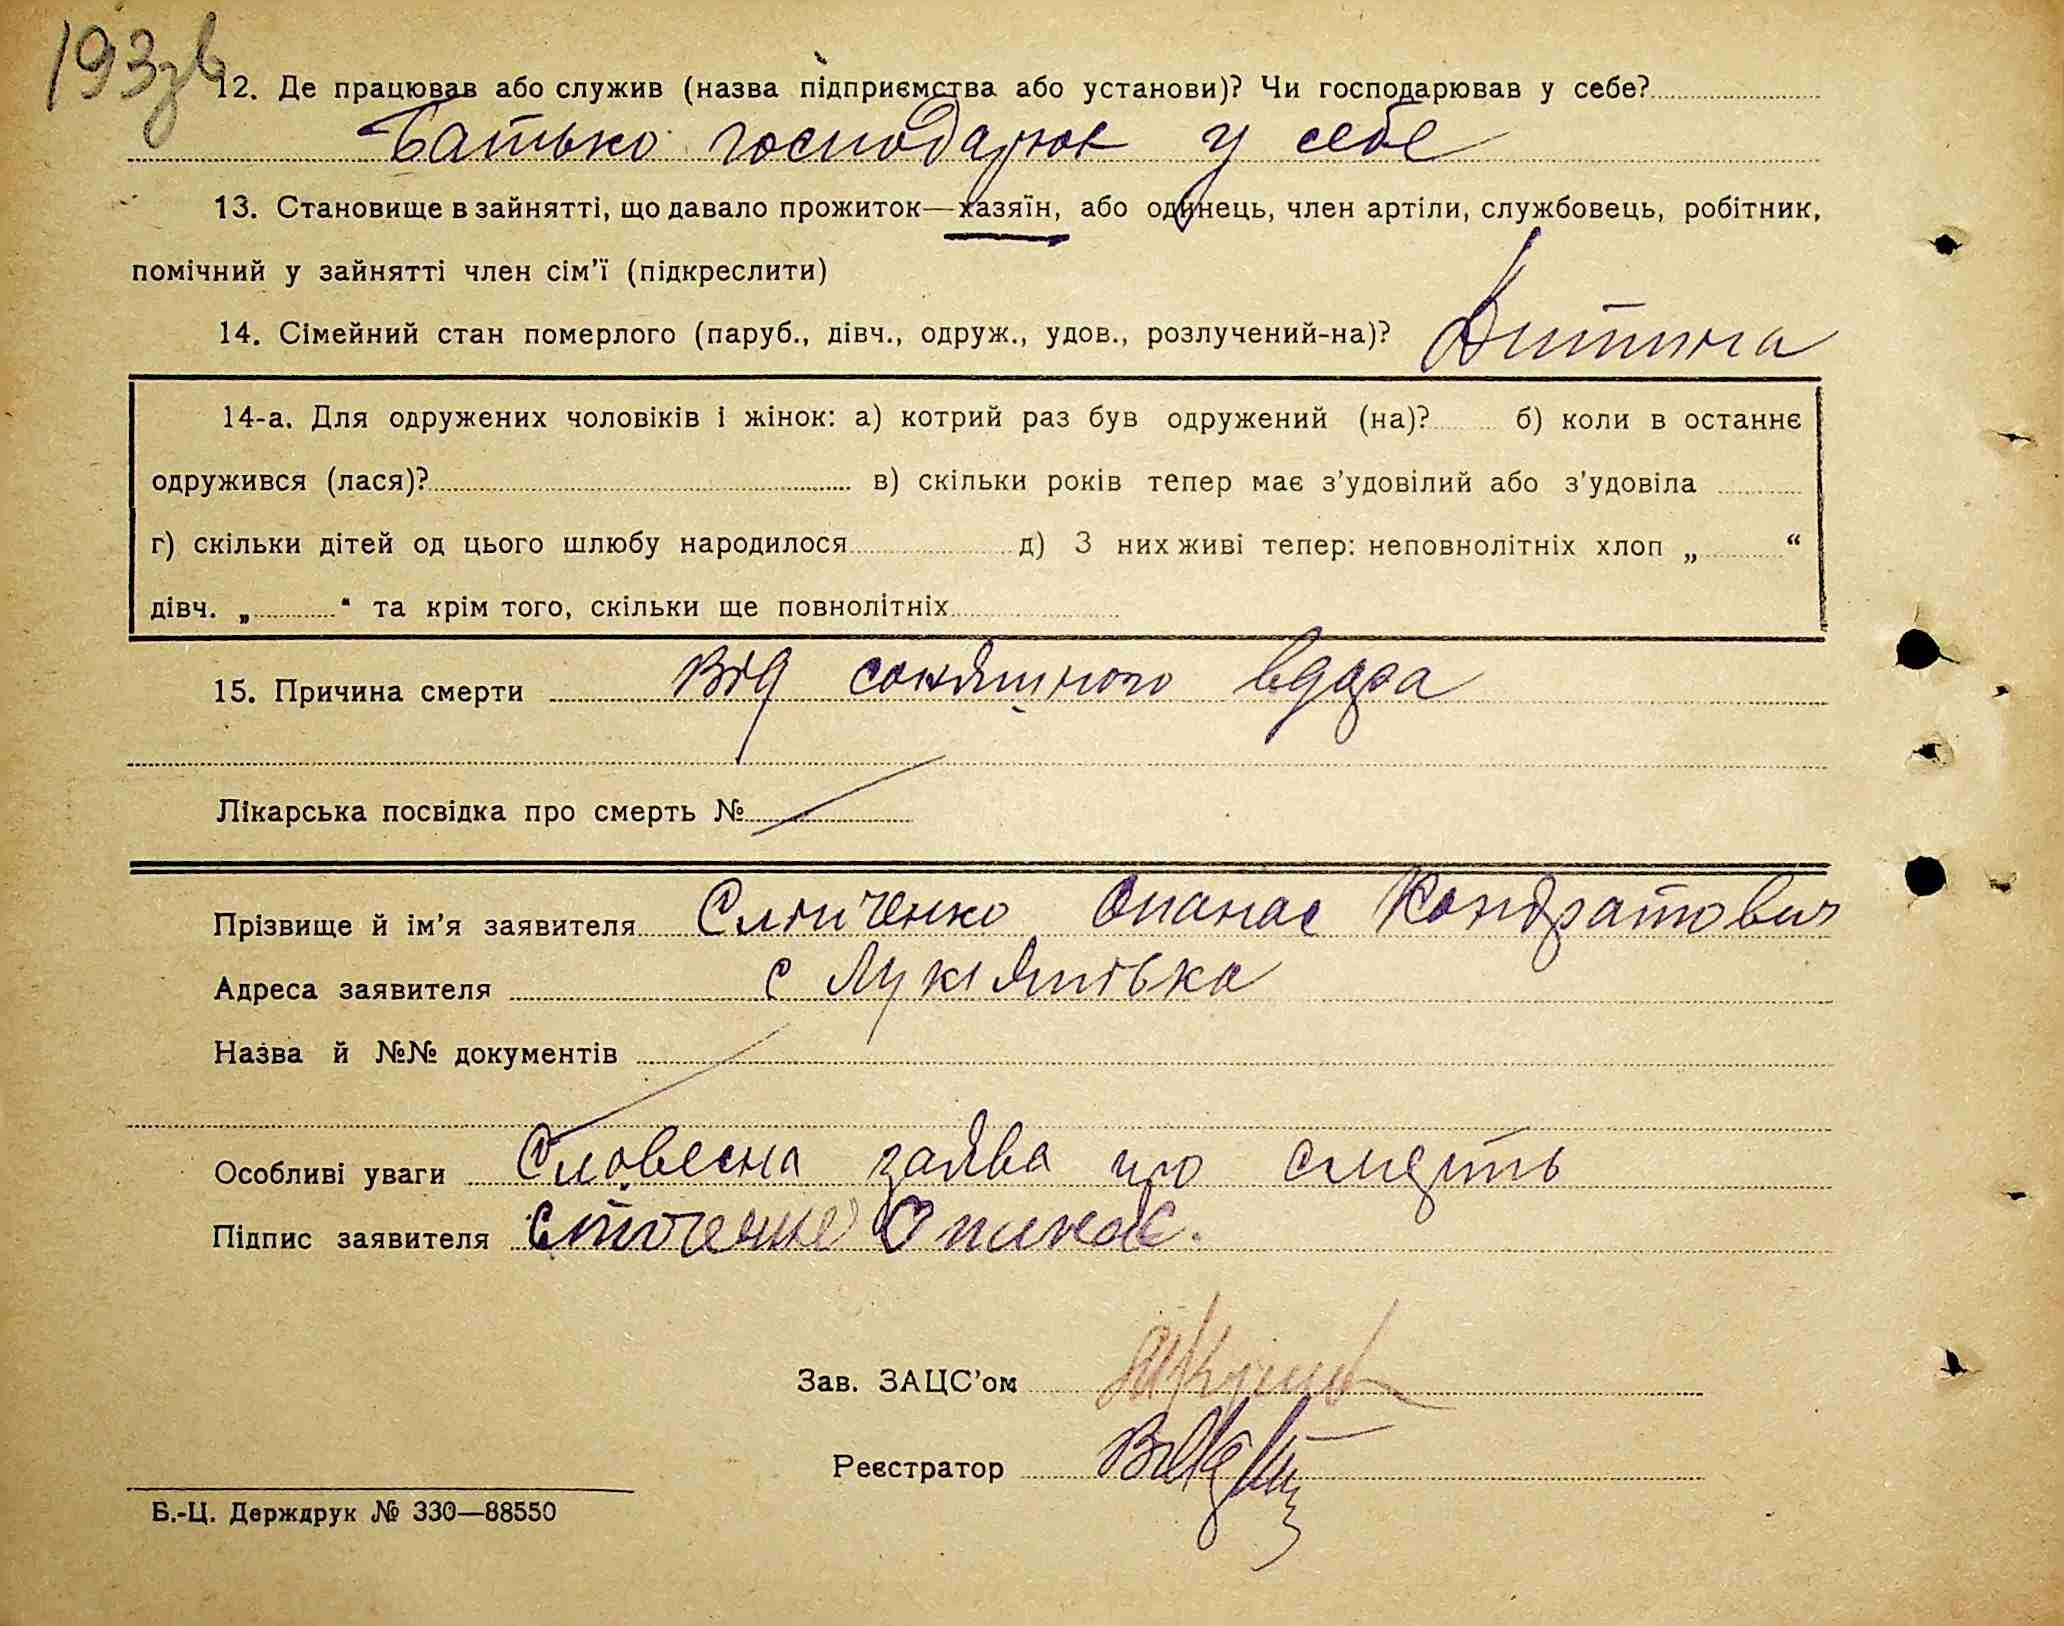 193зв
12. Де працював або служив (назва підприємства або установи)? Чи господарював у себе?
Батько господарює у себе
13. Становище в зайнятті, що давало прожиток—хазяїн, або одинець, член артіли, службовець, робітник,
помічний у зайнятті член сім’ї (підкреслити)
14. Сімейний стан померлого (паруб., дівч., одруж., удов., розлучений-на)? Дитина
14-а. Для одружених чоловіків і жінок: а) котрий раз був одружений (на)? б) коли в останнє
одружився (лася)? в) скільки років тепер має з’удовілий або з’удовіла
г) скільки дітей од цього шлюбу народилося д) З них живі тепер: неповнолітніх хлоп „ “
дівч. „ “ та крім того, скільки ще повнолітніх
15. Причина смерти Від соняшного вдара
Лікарська посвідка про смерть №
Прізвище й ім’я заявителя Опанас Кондратович
Адреса заявителя с Лукіянівка
Назва й №№ документів
Особливі уваги Словесна заява про смерть
Підпис заявителя Опанас.
Зав. ЗАЦС’ом
Реєстратор
Б.-Ц. Держдрук № 330—88550